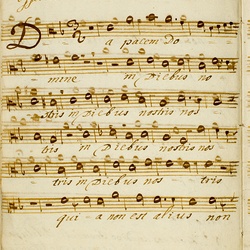 Da pacem Do
mine in Diebus no
stris in Diebus nostris nos
tris in Diebus nostris nos
tris in Diebus nos - tris
qui - a non est alius non